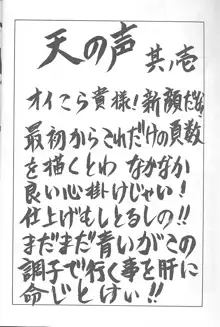 天の声 其ノ壱
オイこら貴様!新顔だな
最初からこれだけの頁数
を描くとわ なかなか
良い心掛けじゃい!
仕上げもしとるしの!!
まだまだ青いがこの
調子で行く事を肝に
命じとけい!!